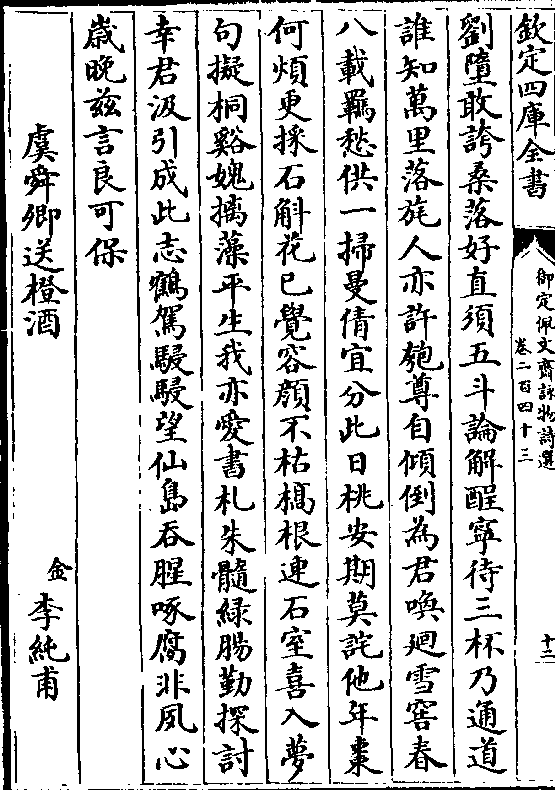 欽定四庫全書
御定佩文齋詠物詩選
卷二百四十三
十三
劉墮敢誇桑落好直須五斗論解酲寧待三杯乃通道
誰知萬里落旄人亦許匏尊自傾倒為君喚廻雪窖春
八載羈愁供一掃曼倩宜分此日桃安期莫詫他年棗
何煩更採石斛花已覺容顔不枯槁根連石室喜入夢
句擬桐谿媿摛藻平生我亦愛書札朱髓緑腸勤探討
幸君汲引成此志鶴駕駸駸望仙島吞腥啄腐非夙心
嵗晚兹言良可保
虞舜卿送橙酒
金 李純甫